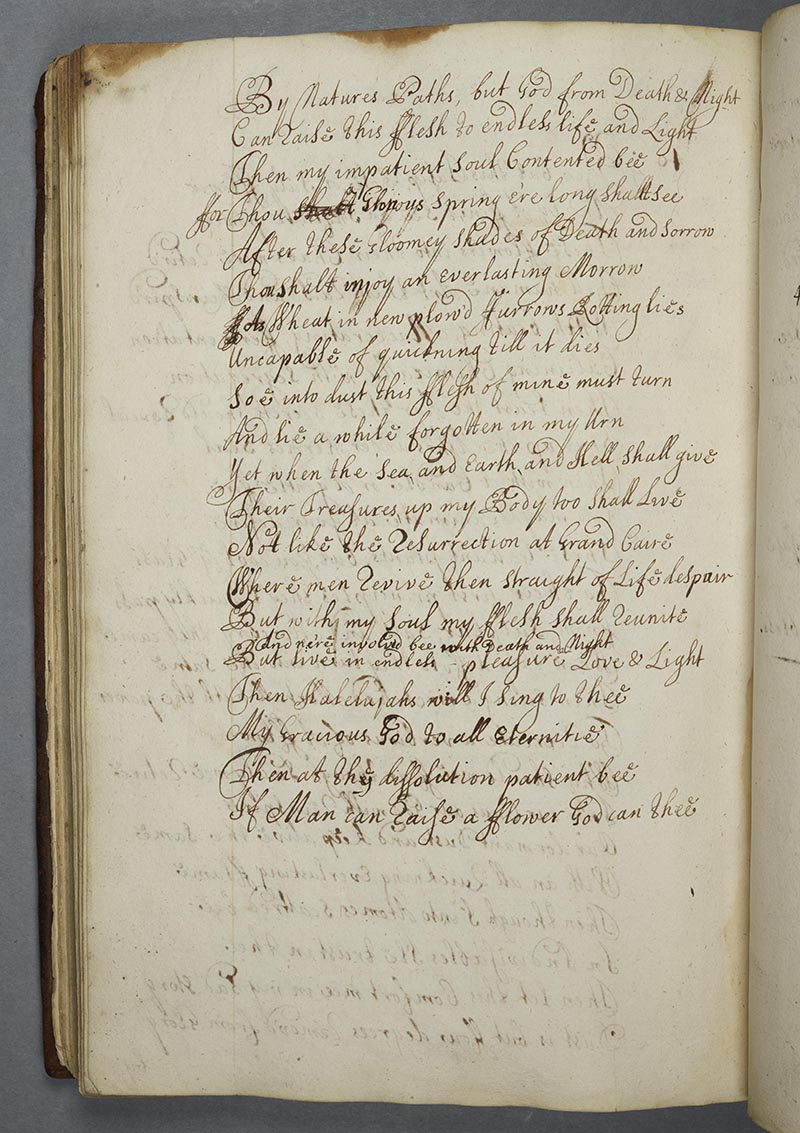 By Natures Paths, but God from Death & Night
Can raise this fflesh to endles life and Light
Then my impatient Soul Contented bee
ffor Thou shalt Glorioys Spring e're long shallt see
After these gloomey shades of Death and sorrow
Thou shalt injoy an everlasting Morrow
As Wheat in new plow'd ffurrows Rotting lies
Uncapable of quickning till it dies
Soe into dust this fflesh of mine must turn
And lie a while forgotten in my Urn
Yet when the Sea, and Earth, and Hell shall give
Their Treasures up my Body too shall Live
Not like the Resurrection at Grand Caire
Where men revive then straight of Life despair
But with my Soul my fflesh shall reunite
And ne're involv'd bee with Death and Night
But live in endles pleasure Love & Light
Then Halelujahs will I sing to thee
My Gracious God to all Eternitie
Then at thy dissolution patient bee
If Man can raise a fflower God can thee